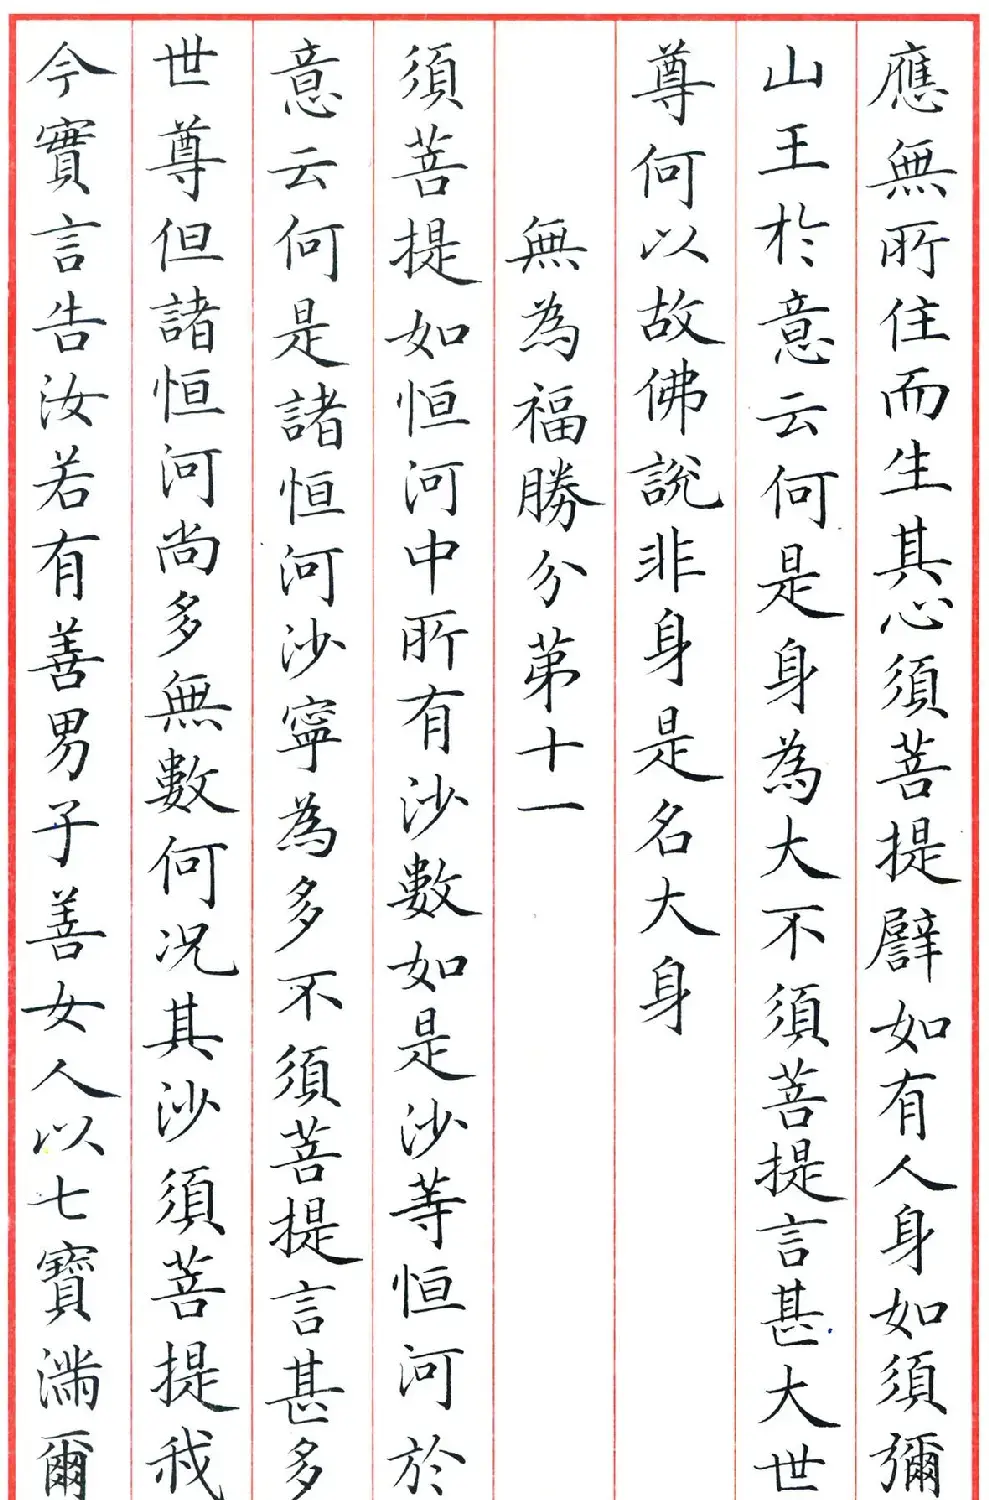 應無所住而生其心須菩提譬如有人身如須彌
山王於意云何是身為大不須菩提言甚大世
尊何以故佛說非身是名大身
無為福勝分第十一
須菩提如恒河中所有沙數如是沙等恒河於
意云何是諸恒河沙寧為多不須菩提言甚多
世尊但諸恒河尚多無數何況其沙須菩提我
今實言告汝若有善男子善女人以七寶滿爾